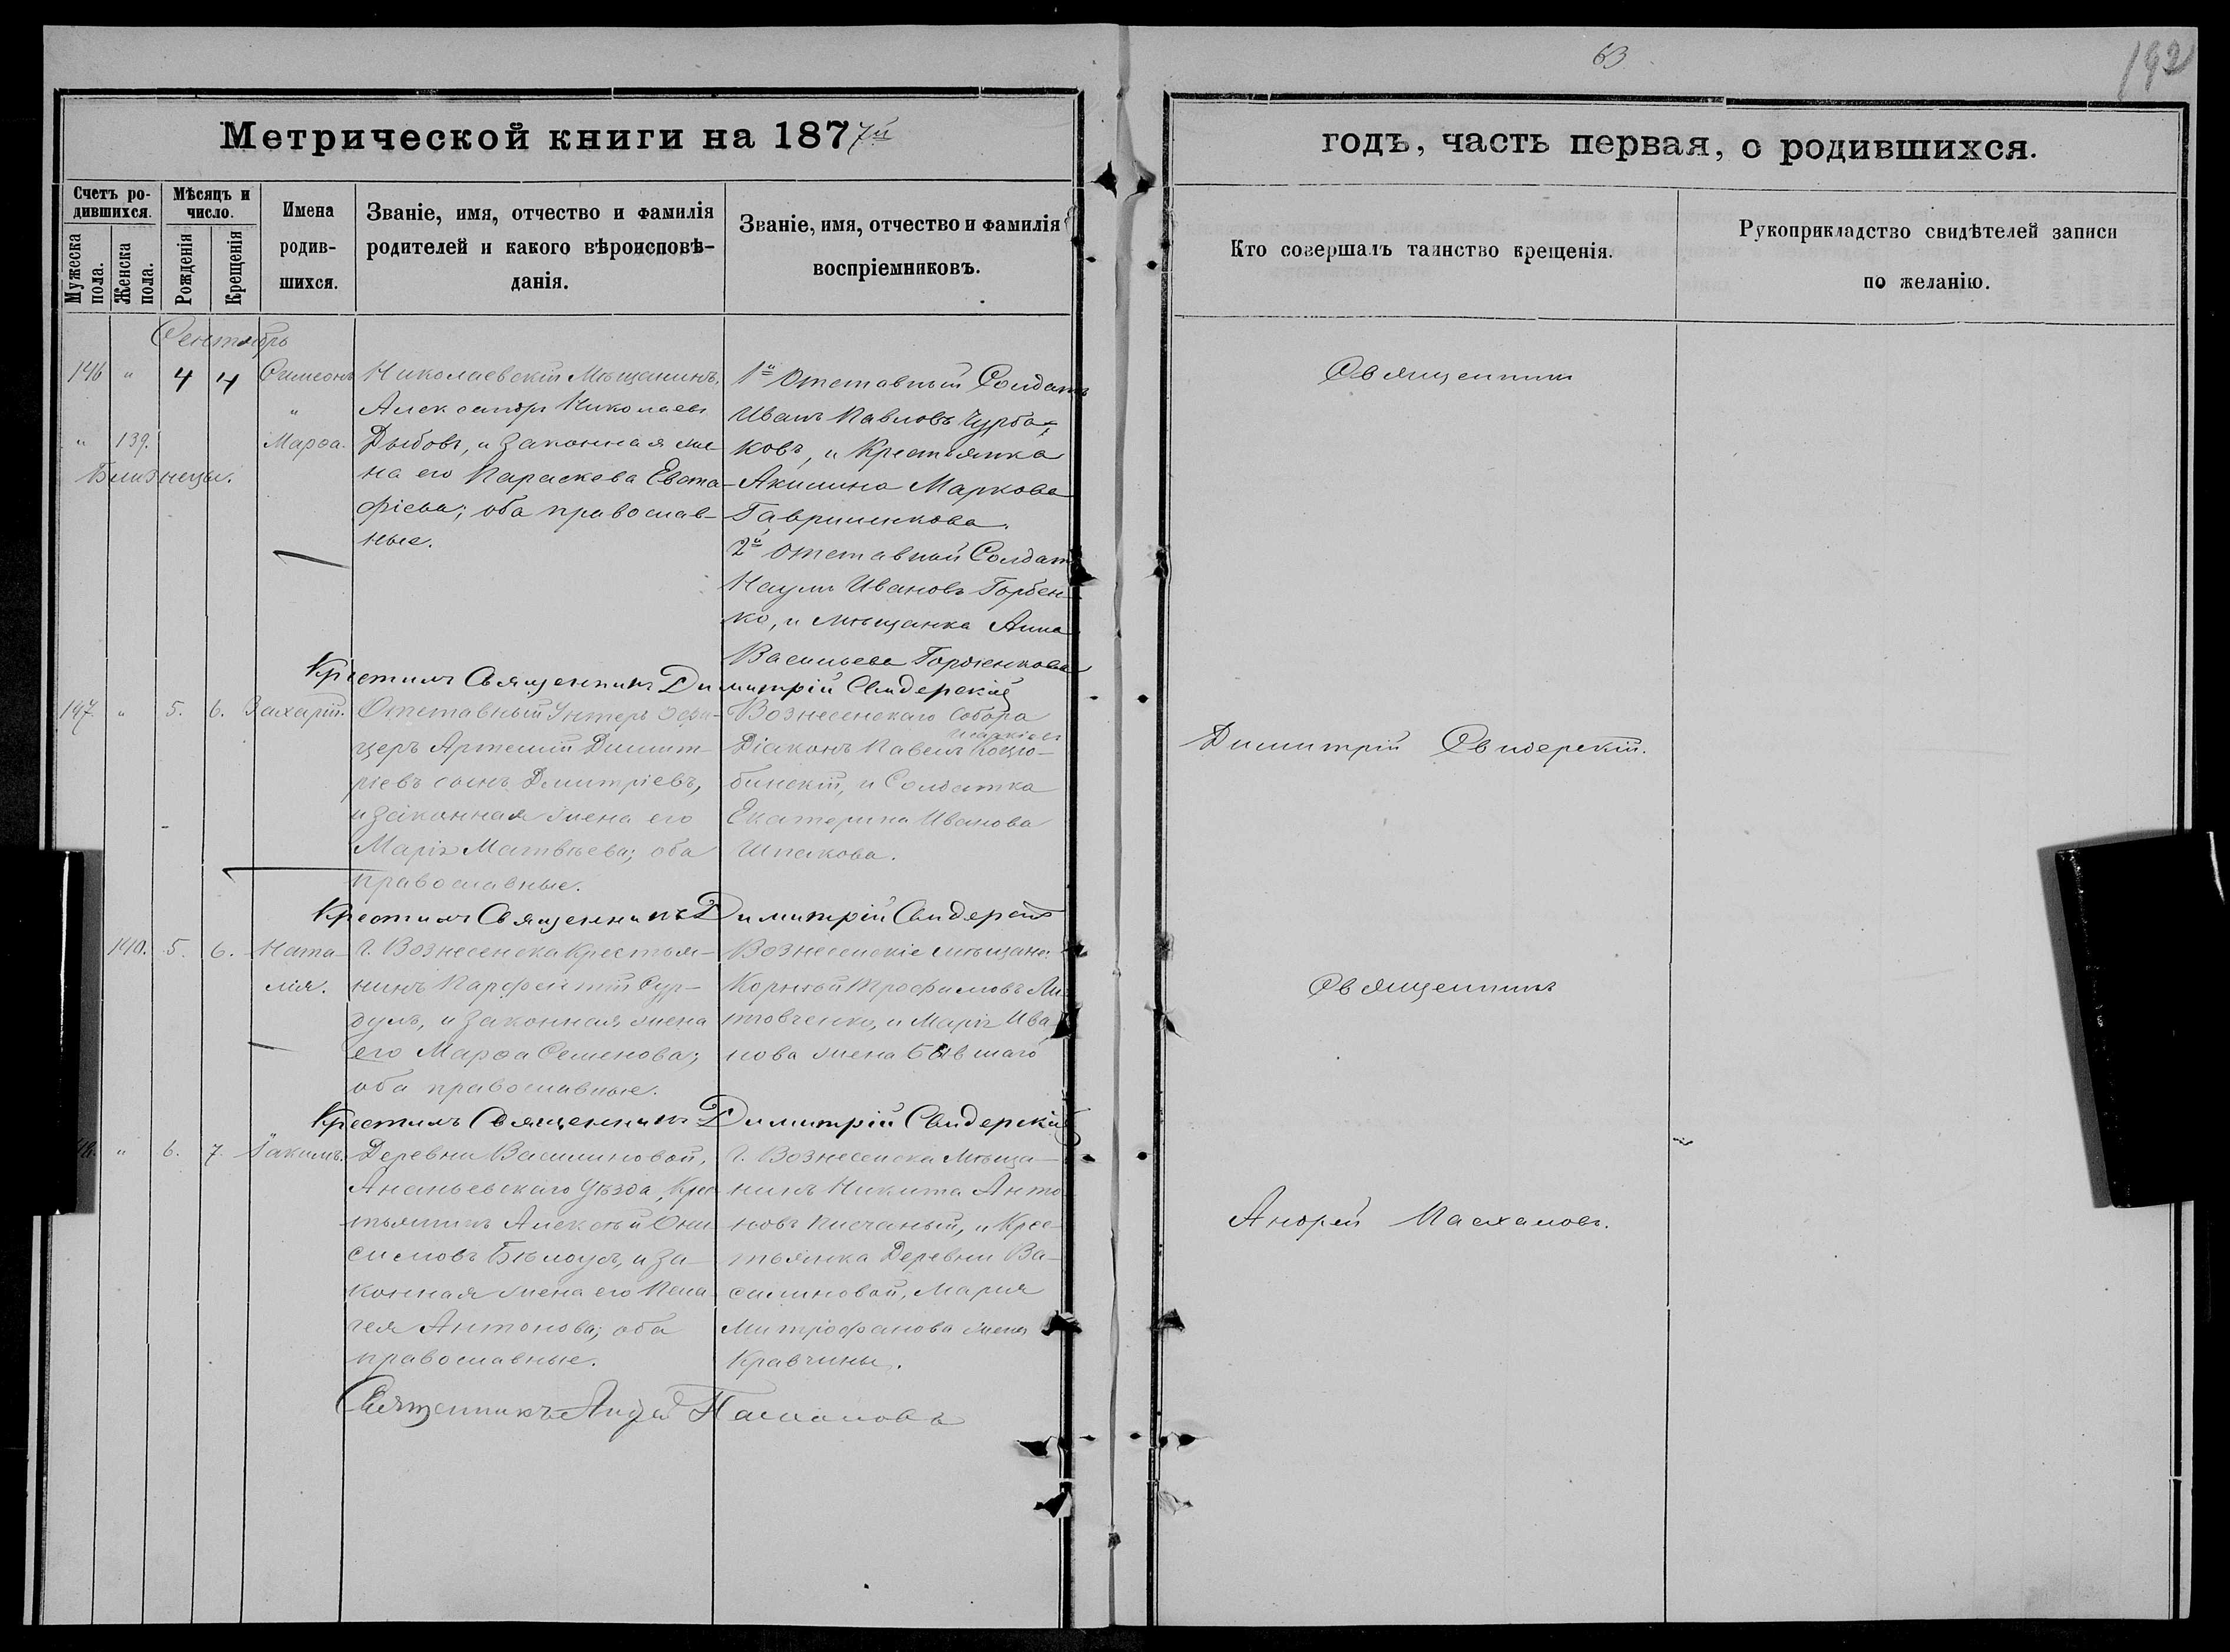 63
192
Метрической книги на 1877й
годъ, часть первая, о родившихся.
Счетъ родившихся.
Мужеска пола.
Женска пола.
Мѣсяцъ и число.
Рожденія
Крещенія
Имена родившихся.
Званіе, имя, отчество и фамилія
родителей и какого вѣроисповѣ-
данія.
Званіе, имя, отчество и фамилія
воспріемниковъ.
Кто совершалъ таинство крещенія.
Рукоприкладство свидѣтелей записи
по желанію.
Сентябрь
146 " 4 4 Симеонъ
"
" 139. Марѳа.
Близнецы.
Николаевскій Мѣщанинъ,
Александръ Николаевъ
Дыбовъ, и законная же-
на его Параскева Евста-
фіева; оба православ-
ные.
1й Отставный Солдатъ
Иванъ Павловъ Чурба-
ковъ, и Крестьянка
Акилина Маркова
Гавриленкова.
2й Отставной Солдатъ
Наумъ Ивановъ Горбен-
ко, и мѣщанка Анна
Васильева Горбенкова
Крестилъ Священникъ Димитрій Свидерскій
147. " 5. 6. Захарій.
Отставный Унтеръ Офи-
церъ Артемій Димит-
ріевъ сынъ Дмитріевъ,
и законная жена его
Марія Матвѣева; оба
православные.
Вознесенскаго Собора
Діаконъ Павелъ Коцю-
бинскій, и Солдатка
Екатерина Иванова
Шпакова.
Крестилъ Священникъ Димитрій Свидерскій
140. 5. 6. Ната-
лія.
г. Вознесенска Крестья-
нинъ Парфентій Сур-
дулъ, и законная жена
его Марѳа Семенова;
оба православные.
Вознесенскіе мѣщане:
Корнѣй Трофимовъ Ли-
товченко, и Марія Ива-
нова жена Бывшаго
Крестилъ Священникъ Димитрій Свидерскій
148. " 6. 7. Іакимъ.
Деревни Василиновой,
Ананьевскаго Уѣзда, Крес-
тьянинъ Алексѣй Они-
симовъ Бѣлоусъ, и за-
конная жена его Пела-
гея Антонова; оба
православные.
г. Вознесенска Мѣща-
нинъ Никита Анто-
новъ Писчаный, и Крес-
тьянка Деревни Ва-
силиновой, Мария
Митрофанова жена
Кравчины.
Священникъ Андрей Пасхаловъ
Священникъ
Димитрій Свидерскій.
Священникъ
Андрей Пасхаловъ.